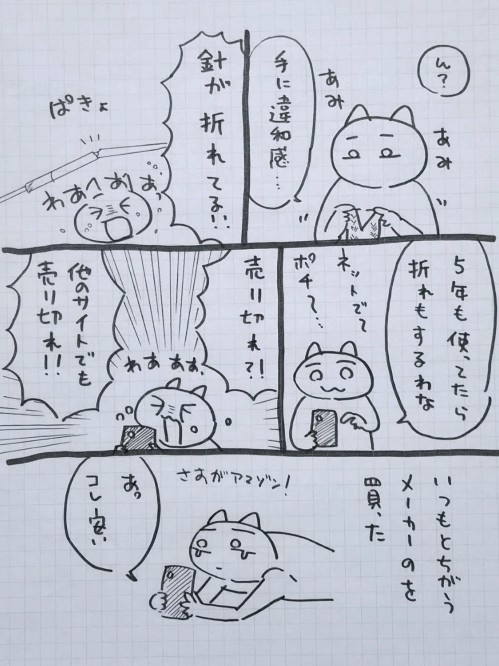 ん?
あみ
あみ
手に違和感…
針が
折れてる!!
ぱきょ
わあへ
おりあっ
5年も使ってたら
折れもするわな
ネットでて
ポチて…
売り切れ?!
わああす、
他のサイトでも
売り切れ!!
いつもとちがう
メーカーのを
買った
さすがアマゾン!
あっ
コレ安い